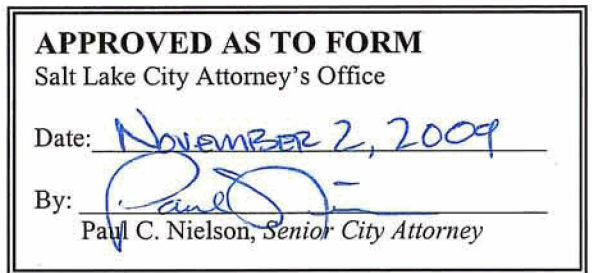 APPROVED AS TO FORM
Salt Lake City Attorney's Office
Date: NOVEMBER 2, 2009
By: Paul
Paul C. Nielson, Senior City Attorney